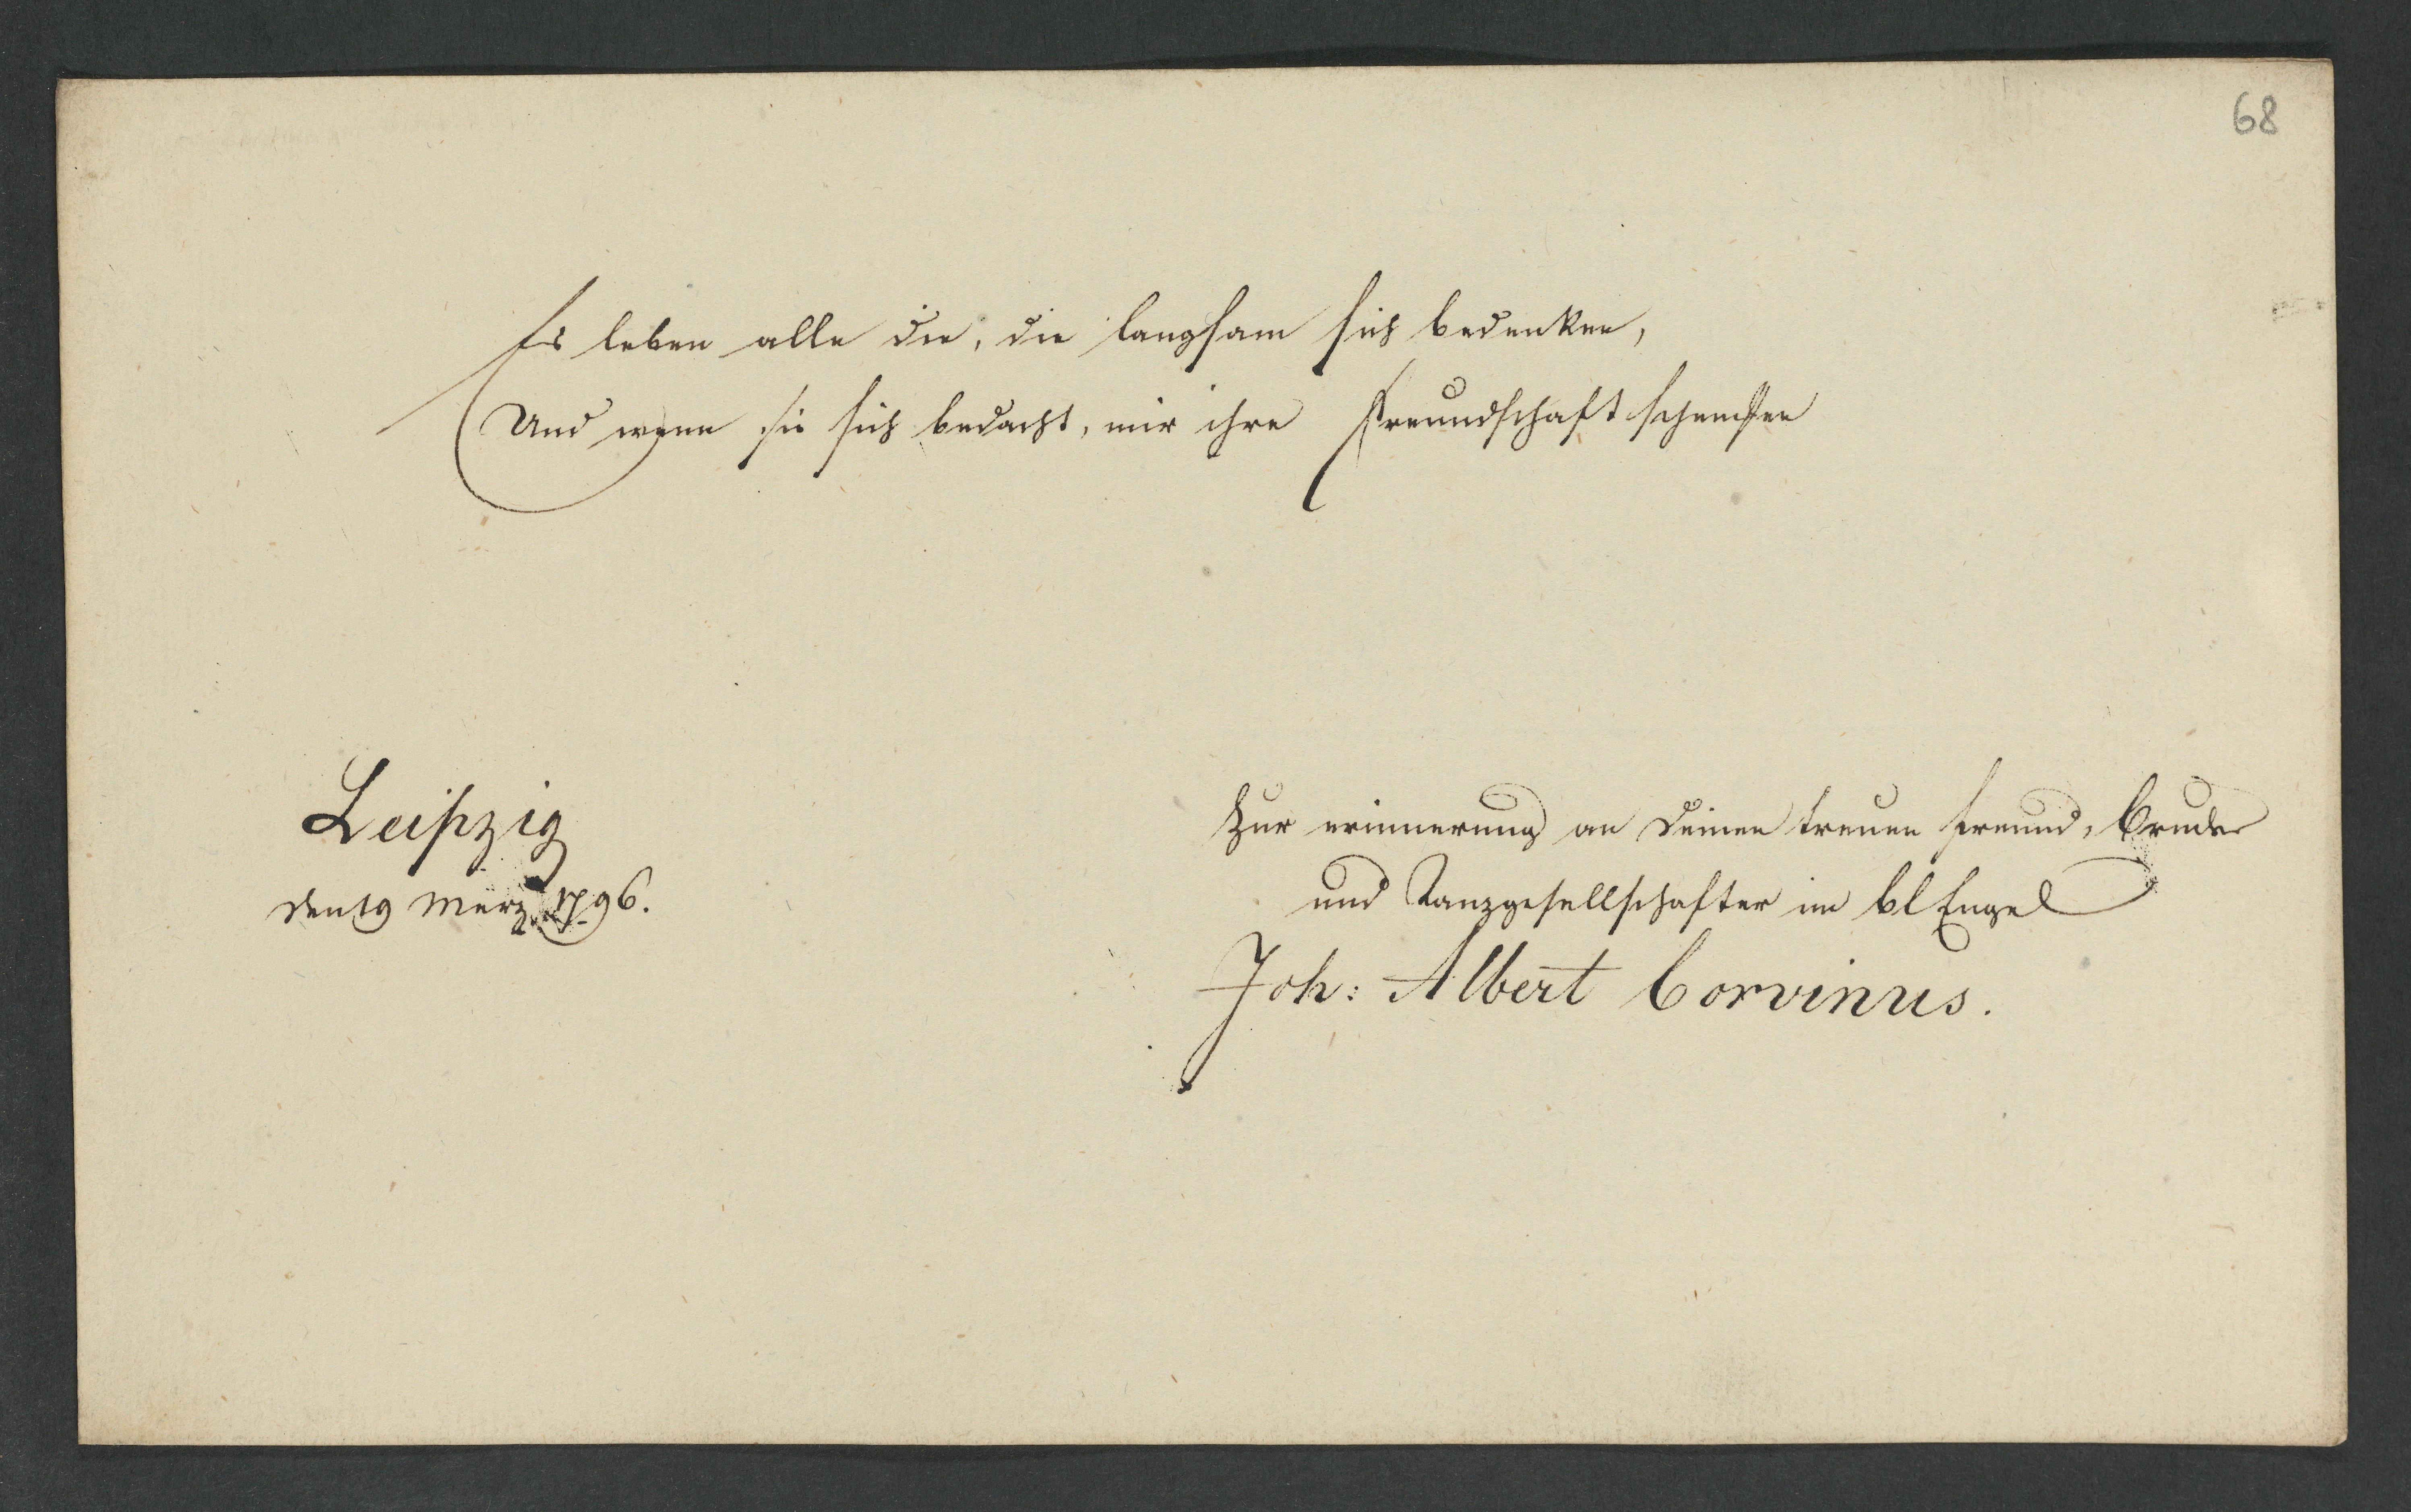 68
Es leben alle die, die langsam sich bedenken,
Und wenn sie sich bedacht, mir ihre Freundschaft schencken
Leipzig
den 19 März 1796.
Zur erinnerung an Deinen treuen freund, bruder
und Tanzgesellschafter im bl Engel
Joh: Albert Corvinus.